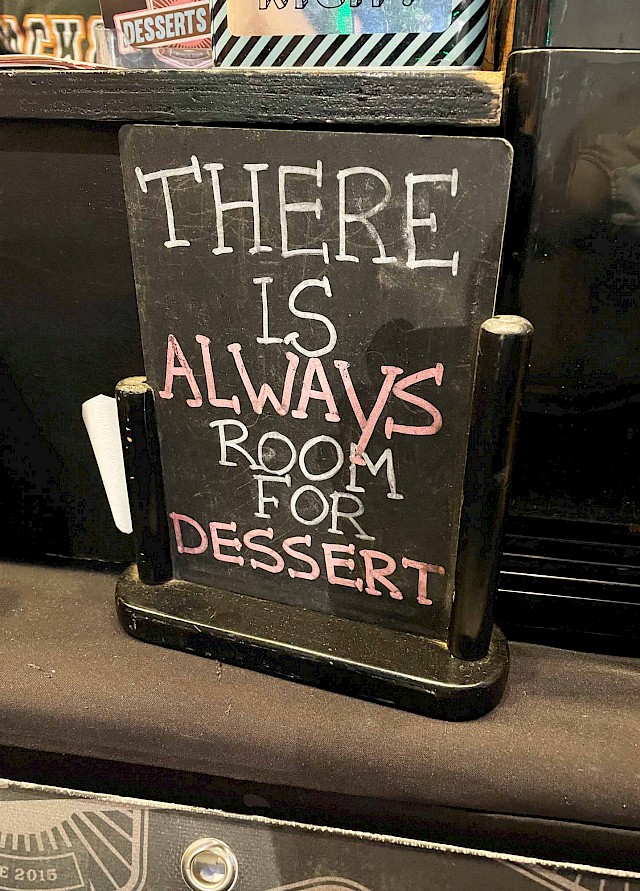 DESSERTS
THERE
IS
ALWAYS
ROOM
FOR
DESSERT
E 2015